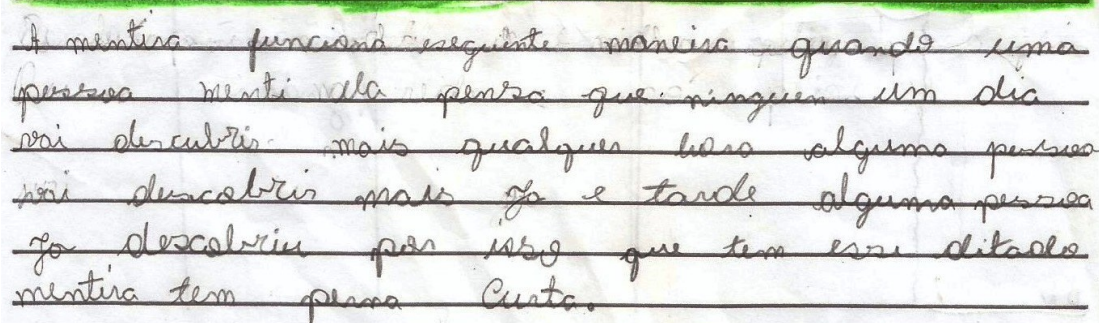 A mentira funciona seguente maneira quando uma
pessoa menti ela pensa que ninguen um dia
vai descubrir mais qualquer hora alguma pessoa
vai descobrir mais ja e tarde alguma pessoa
ja descobriu por isso que tem essi ditado
mentira tem perna Curta.